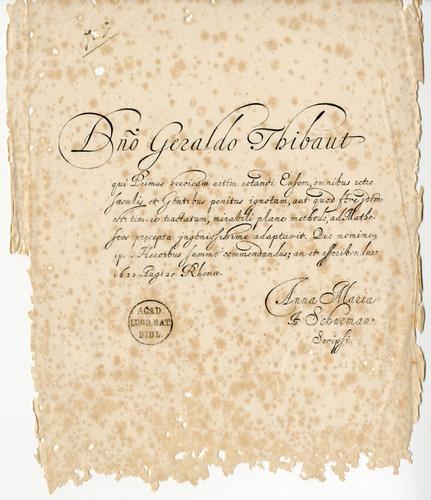 Dno Geraldo Thibaut
qui Primus heroicam artem rotandi Ensem, omnibus retro
saeculis et Gentibus penitus ignotam, aut quod fere idem
est, temere tractatam, mirabili plane methodo, ad Mathe-
seos precepta ingeniosissime adaptavit. Quo nomine
Heroibus summe commendandus; an et
Rhenen
Anna Maria
Schurman
Scripsi.
ACAD.
LUGD. BAT.
BIBL.